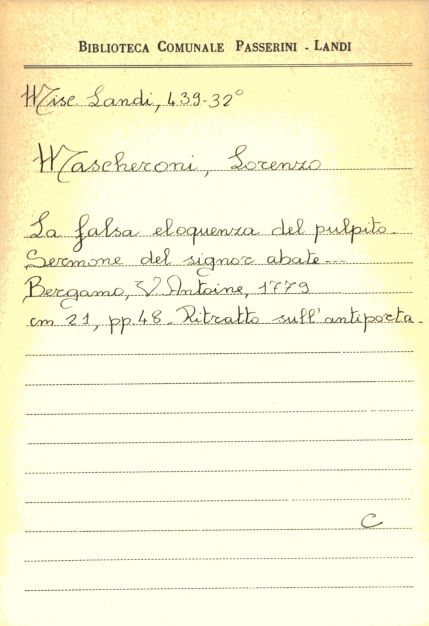 BIBLIOTECA COMUNALE PASSERINI - LANDI
Misc. Landi, 439-32°
Mascheroni, Lorenzo
La falsa eloquenza del pulpito.
Sermone del signor abate---
Bergamo, V. Antoine, 1779
cm 21, pp. 48. Ritratto sull'antiporta.
C